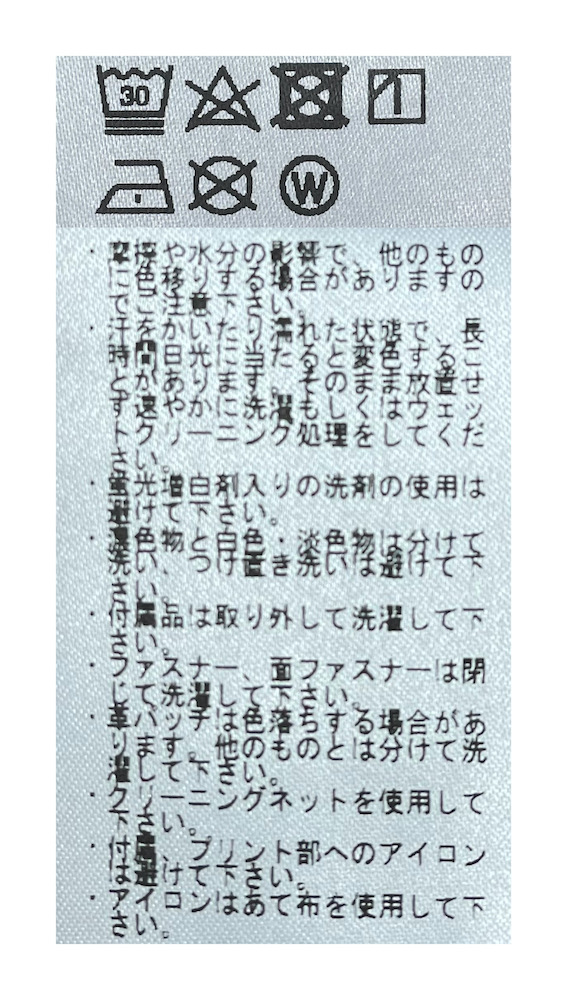 30
W
・摩擦や水分の影響で、他のもの
に色移りする場合がありますの
でご注意下さい。
・汗をかいたり濡れた状態で、長
時間日光に当たると変色するこ
とがあります。そのまま放置せ
ず速やかに洗濯もしくはウェッ
トクリーニング処理をしてくだ
さい。
・蛍光増白剤入りの洗剤の使用は
避けて下さい。
・濃色物と白色・淡色物は分けて
洗い、つけ置き洗いは避けて下
さい。
・付属品は取り外して洗濯して下
さい。
・ファスナー、面ファスナーは閉
じて洗濯して下さい。
・革パッチは色落ちする場合があ
ります。他のものとは分けて洗
濯して下さい。
・クリーニングネットを使用して
下さい。
・付属、プリント部へのアイロン
は避けて下さい。
・アイロンはあて布を使用して下
さい。